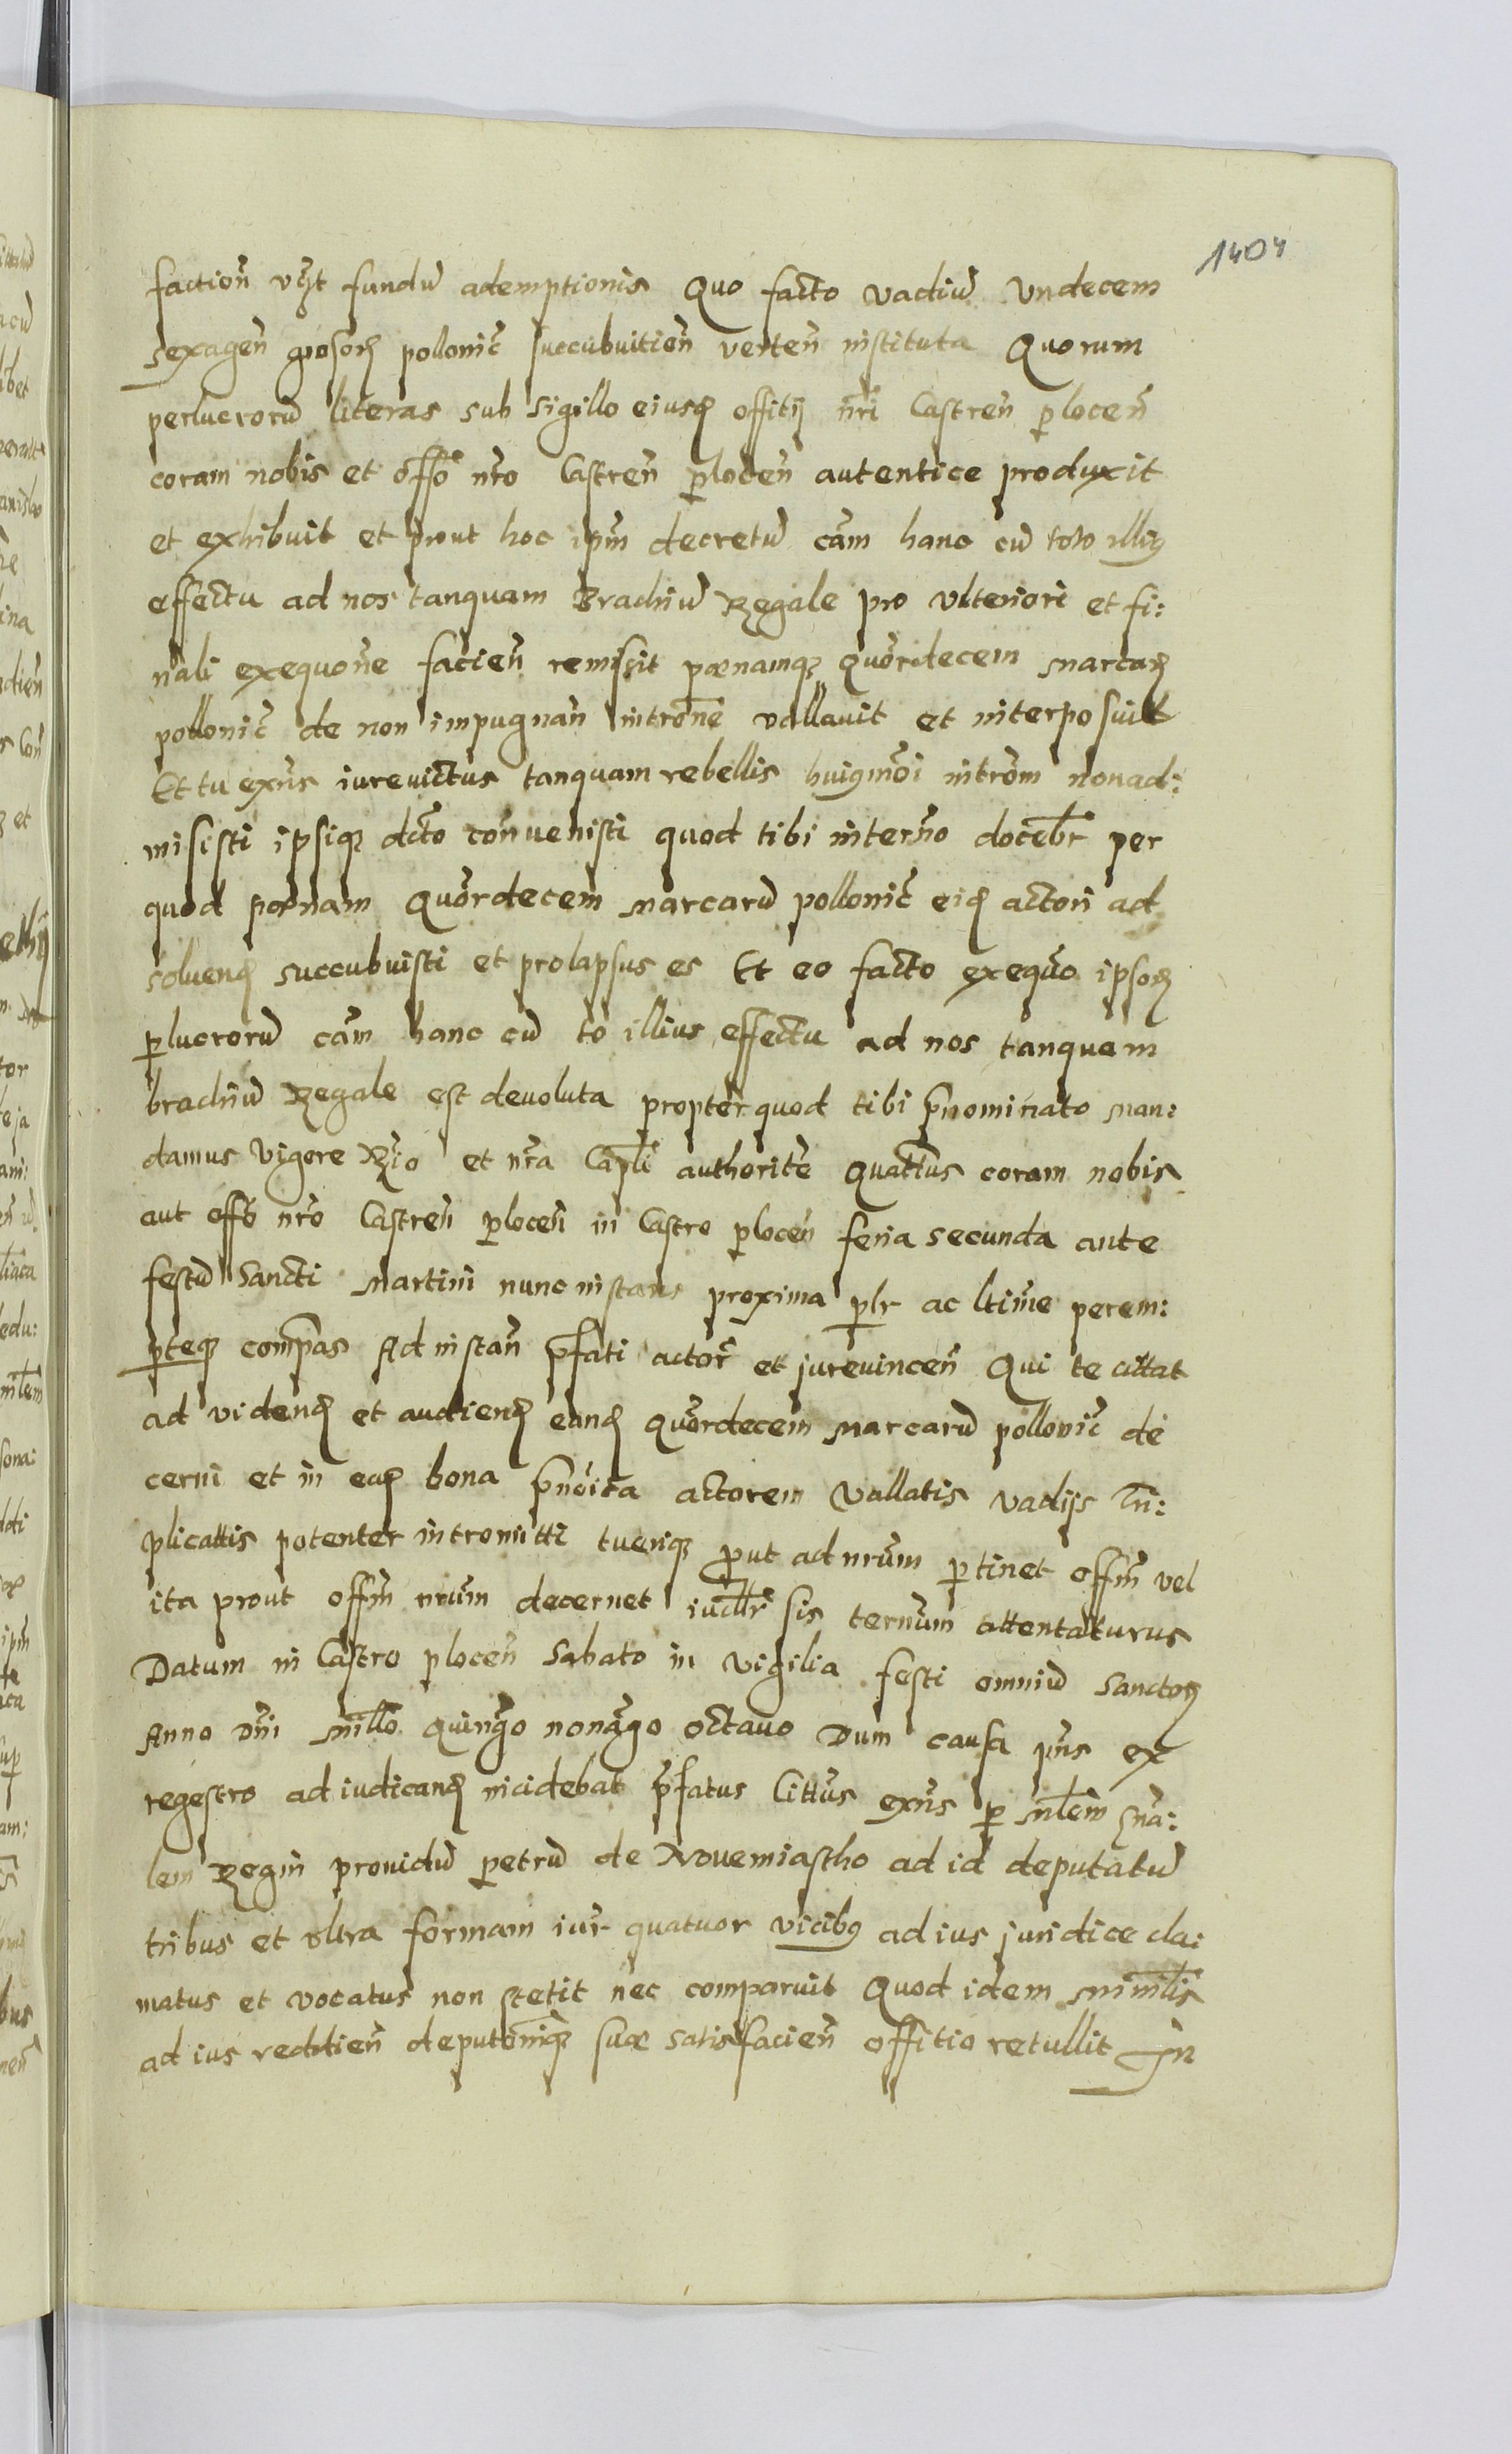 1404
faction̄ vꝫt fundū ademptionis Quo facto vadiū Vndecem
sexagen̄ grosoꝝ pollonic̄ succubuitien̄ verten̄ instituta Quorum
perlucrorū literas sub sigillo eiusd offitÿ nr̄i Castren̄ plocen̄
coram nobis et offō nr̄o Castren̄ plocen̄ autentice produxit
et exhibuit et prout hoc ipm̄ decretū cām hanc cū toto illig
effectu ad nos tanquam Brachiū Regale pro vlteriori et fi:
nali exequōne facien̄ remisit pœnamqꝫ Quordecem marcaꝝ
pollonic̄ de non impugnan̄ intrōne vallauit et interposuit
Et tu exn̄s iurevictus tanquam rebellis huigmōi intrōm nonad:
misisti ipsiqꝫ dc̄to conuenisti quod tibi intern̄o docebr̄ per
quod pœnam Quordecem marcarū pollonic̄ eid actori ad
soluend succubuisti et prolapsus es Et eo facto exequo ipsoꝝ
plucrorū cām hanc cū to illius effectu ad nos tanquem
brachiū Regale est deuoluta propterquod tibi pnominato man:
damus vigore R̄io et nr̄a Capl̄i authorite Quattus coram nobis
aut offō nr̄o Castren̄ plocen̄ in Castro plocen̄ feria secunda ante
festū Sancti Martini nunc instans proxima plr ac ltime perem:
pteqꝫ compas Ad instan̄ pfati actor̄ et jurevincen̄ Qui te citat
ad vidend et audiend eand quordecem marcarū pollonic̄ de
cerni et in ead bona pnōīta actorem vallatis vadijs tri:
plicattis potenter intromitti tueriqꝫ prout ad nrūm ptinet offm̄ vel
ita prout offm̄ nrūm decernet iudlr̄ sis ternūm attentaturus
Datum in Castro plocen̄ Sabato in vigilia festi omniū Sanctoꝝ
Anno Dn̄i Millō Quingo nonago octauo Dum causa pn̄s ex
regestro ad iudicand incidebat pfatus Cittus exn̄s p Mlem gna:
lem Regin̄ prouidū petrū de Nouemiastho ad id deputatū
tribus et vltra formam iur̄ quatuor vicibg ad ius juridice cla:
matus et vocatus non stetit nec comparuit Quod idem minrlis
ad ius reddien̄ deputōniqꝫ suæ satisfacien̄ offitio retullit In